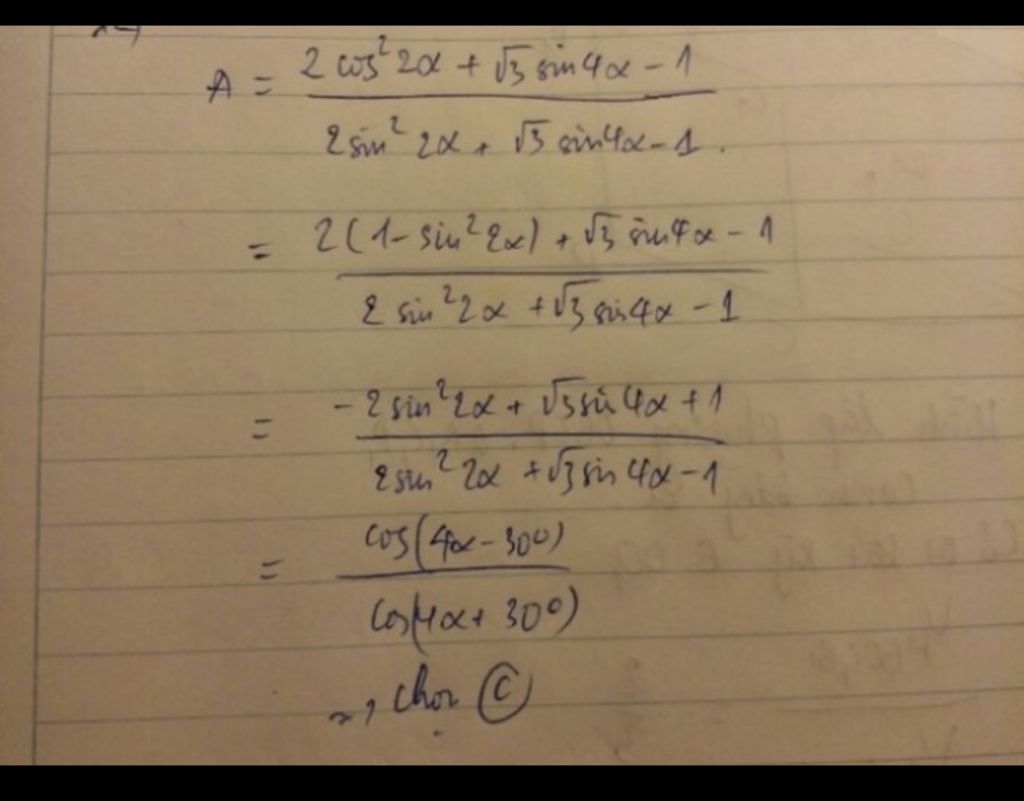 A = (2 cos² 2α + √3 sin 4α - 1) / (2 sin² 2α + √3 sin 4α - 1).
= (2(1 - sin² 2α) + √3 sin 4α - 1) / (2 sin² 2α + √3 sin 4α - 1)
= (-2 sin² 2α + √3 sin 4α + 1) / (2 sin² 2α + √3 sin 4α - 1)
= cos(4α - 30°) / cos(4α + 30°)
chọn C